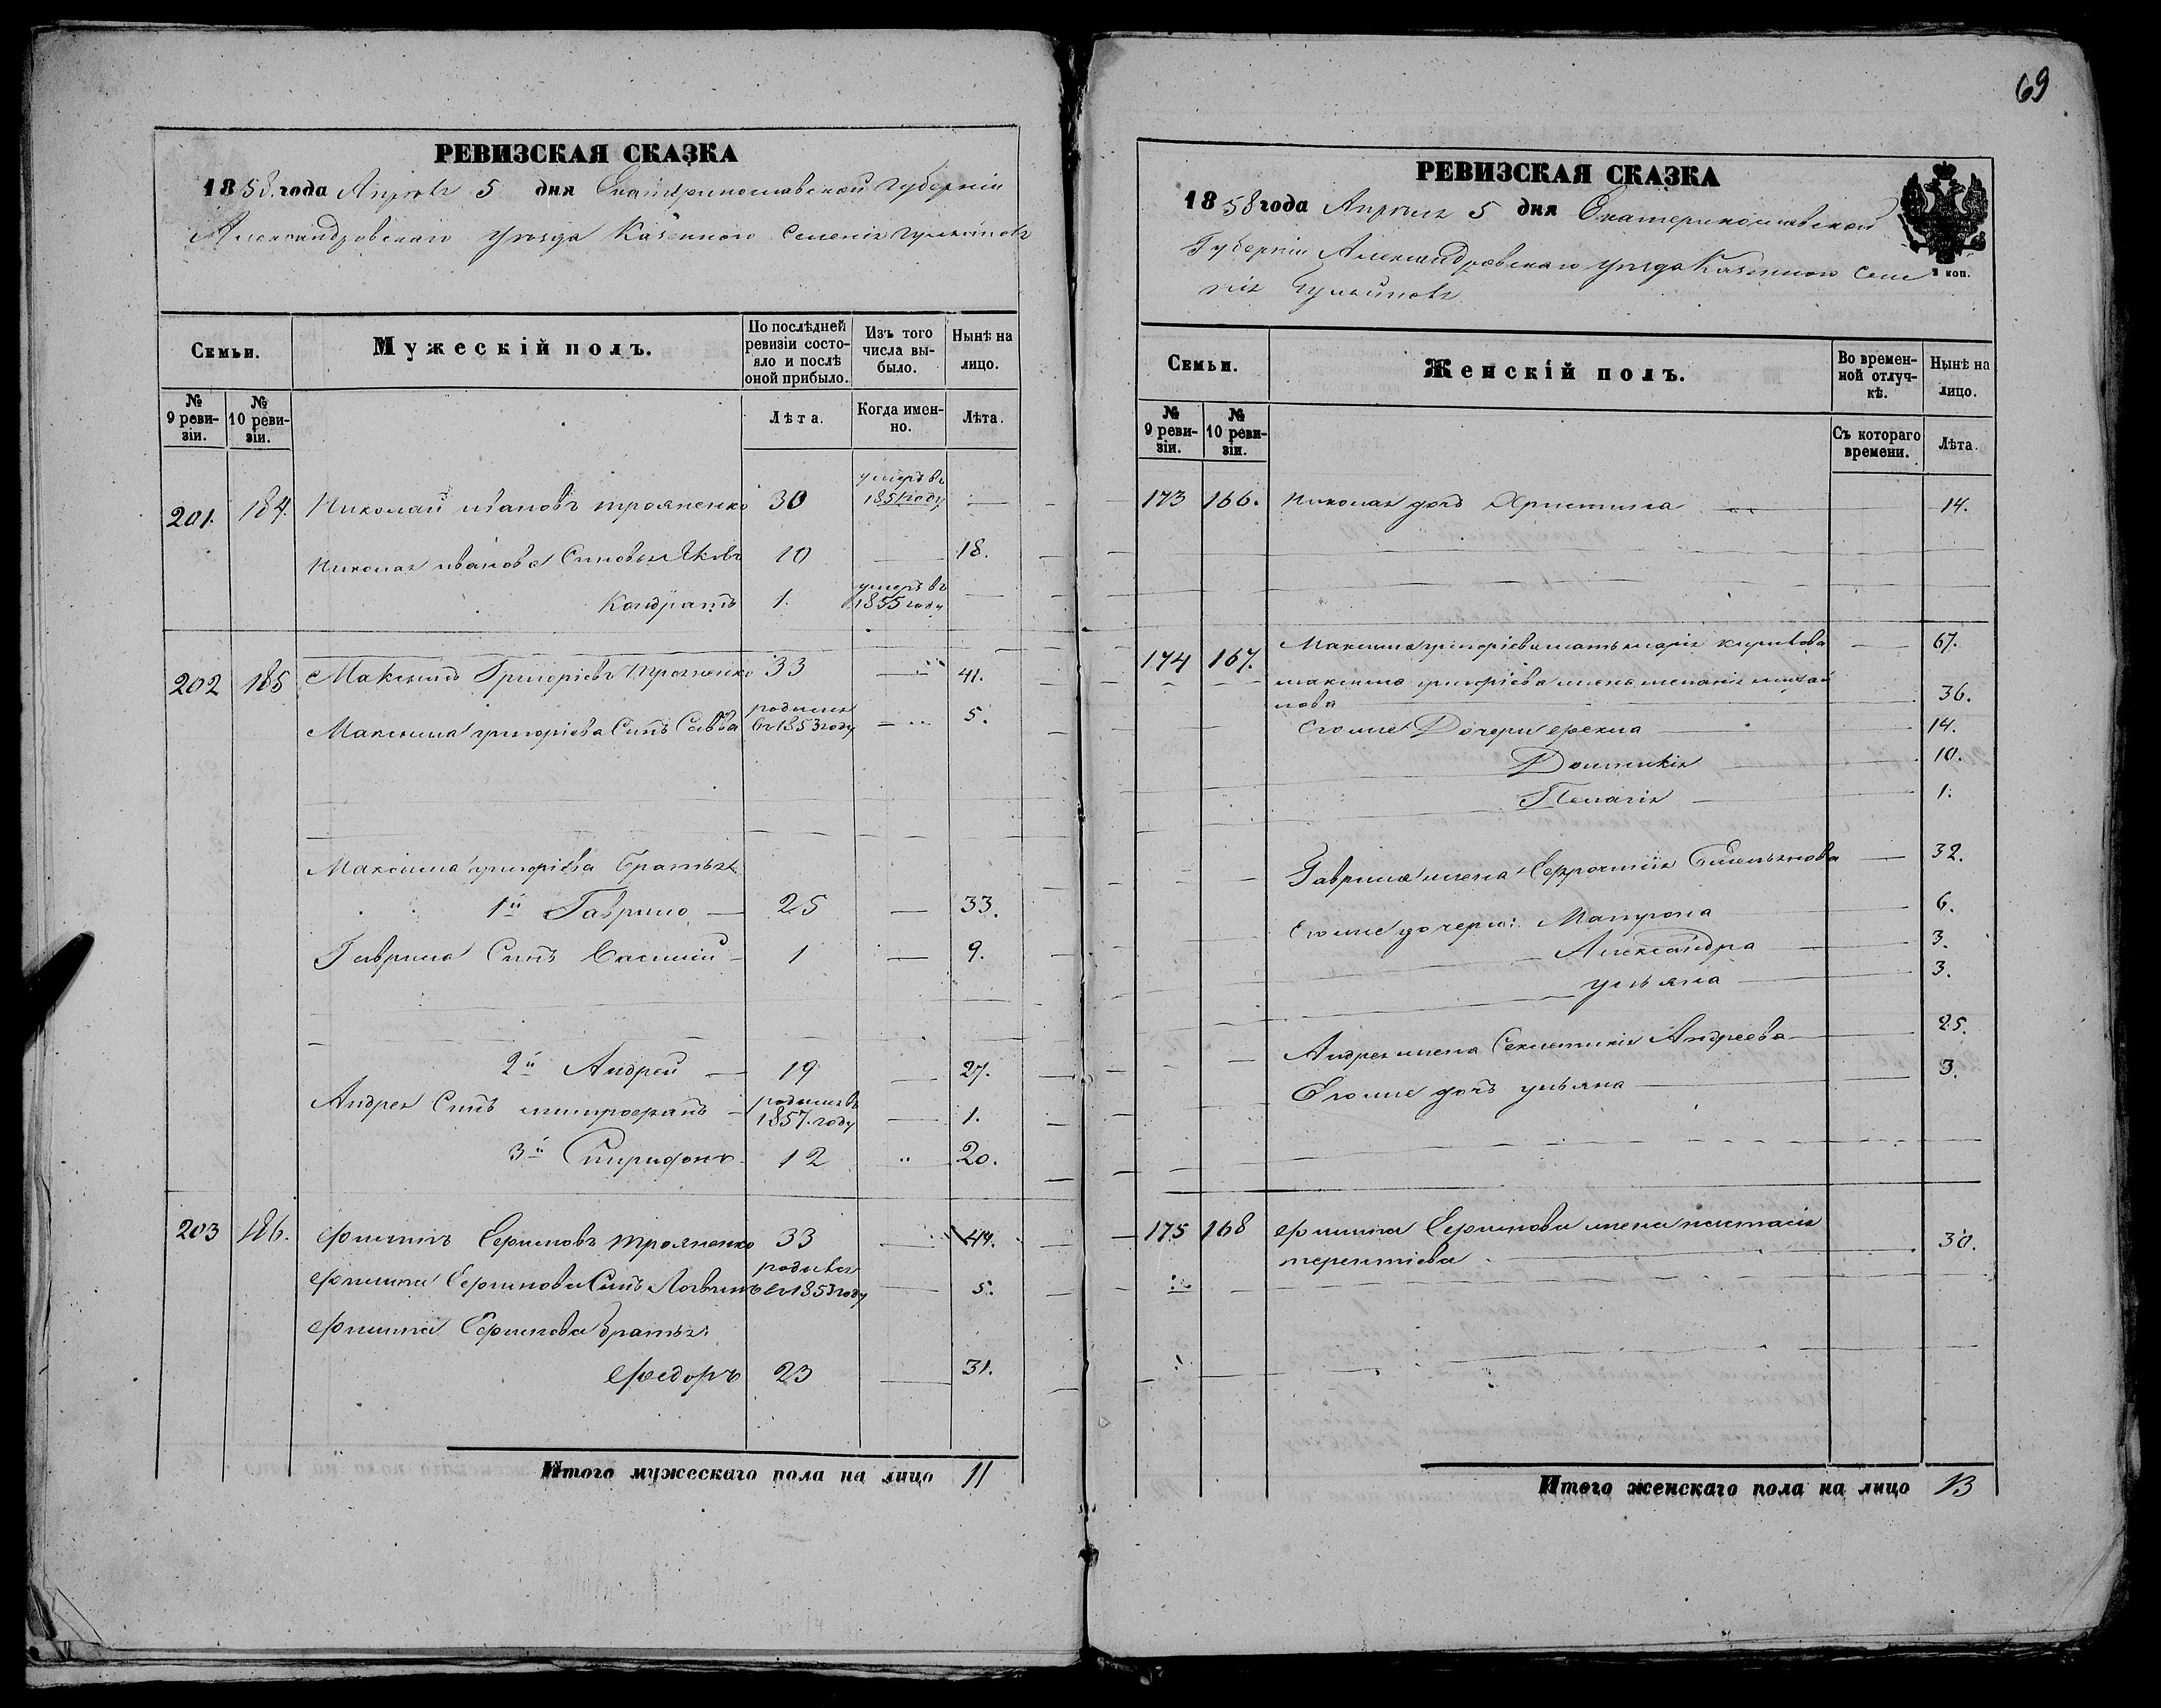 РЕВИЗСКАЯ СКАЗКА
1858 года Апреля 5 дня Екатеринославской губерніи
Александровскаго уезда Казенного Селенія Гуляйполя
Семьи. Мужескій полъ. По послѣдней ревизіи состояло и послѣ оной прибыло. Изъ того числа выбыло. Нынѣ на лицо.
№ 9 ревизіи. № 10 ревизіи. Лѣта. Когда именно. Лѣта.
201. 184. Николай ивановъ трояненко 30 умеръ въ 1851 году
Николая иванова Сыновья Яковъ 10 18.
Кондратъ 1. умеръ въ 1855 году
202 185 Максимъ Григоріевъ трояненко 33 41.
Максима григоріева Сынъ Савва родился въ 1853 году 5.
Максима григоріева братья
1й Гаврило 25 33.
Гаврила Сынъ Василій 1 9.
2й Андрей 19 27.
Андрея Сынъ митрофанъ родился въ 1857. году 1.
3й Спиридонъ 12 20.
203 186. Филипъ Ефимовъ трояненко 33 44.
Филипа Ефимова Сынъ Логвинъ родился въ 1853 году 5.
Филипа Ефимова братья:
Федоръ 23 31.
Итого мужескаго пола на лицо 11
69
РЕВИЗСКАЯ СКАЗКА
1858 года Апреля 5 дня Екатеринославской
Губерніи Александровскаго уезда Казенного Селе
нія Гуляйполя
коп.
Семьи. Женскій полъ. Во временной отлучкѣ. Нынѣ на лицо.
№ 9 ревизіи. № 10 ревизіи. Съ котораго времени. Лѣта.
173 166. Николая дочь Христина 14.
174 167. Максима григоріева мать марія кирилова 67.
максима григоріева жена меланія михай
лова 36.
Егоже Дочери фекла 14.
Домникія 10.
Пелагія 1.
Гаврила жена Ефросинія Емельянова 32.
Егоже дочери: Матрона 6.
Александра 3.
ульяна 3.
Андрея жена Секлетикія Андреева 25.
Егоже дочь ульяна 3.
175 168 Филипа Ефимова жена настасія
терентіева 30.
Итого женскаго пола на лицо 13